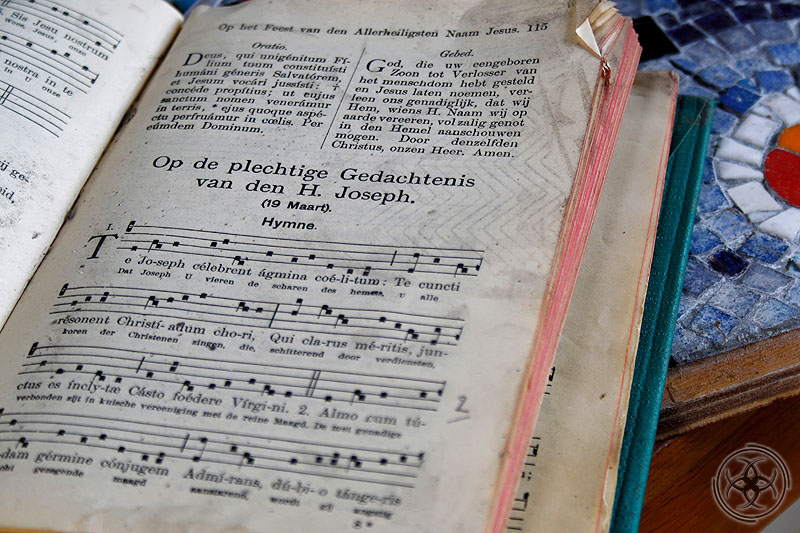 5. Sis Jesu nostrum
nostra in te
in U onze
Op het Feest van den Allerheiligsten Naam Jesus. 115
Oratio.
Deus, qui unigénitum Fí-
lium tuum constituísti
humáni géneris Salvatórem,
et Jesum vocári jussísti: †
concéde propítius; ut cujus
sanctum nomen venerámur
in terris, * ejus quoque aspé-
ctu perfruámur in cœlis. Per
eúmdem Dominum.
Gebed.
God, die uw eengeboren
Zoon tot Verlosser van
het menschdom hebt gesteld
en Jesus laten noemen, ver-
leen ons genadiglijk, dat wij
Hem, wiens H. Naam wij op
aarde vereeren, vol zalig genot
in den Hemel aanschouwen
mogen. Door denzelfden
Christus, onzen Heer. Amen.
Op de plechtige Gedachtenis
van den H. Joseph.
(19 Maart).
Hymne.
1.
Te Jo-seph célebrent ágmina coé-li-tum: Te cuncti
Dat Joseph U vieren de scharen des hemels, u alle
résonent Christí-adum cho-ri, Qui cla-rus mé-ritis, jun-
koren der Christenen zingen, die, schitterend door verdiensten,
ctus es íncly-tæ Cásto foédere Vírgi-ni. 2. Almo cum tú-
verbonden zijt in kuische vereeniging met de reine Maagd. De met genadige
2
dam gérmine cónjugem Admí-rans, dú-bi-o tánge-ris
maagd aanstarend, wordt gij angstig
8*